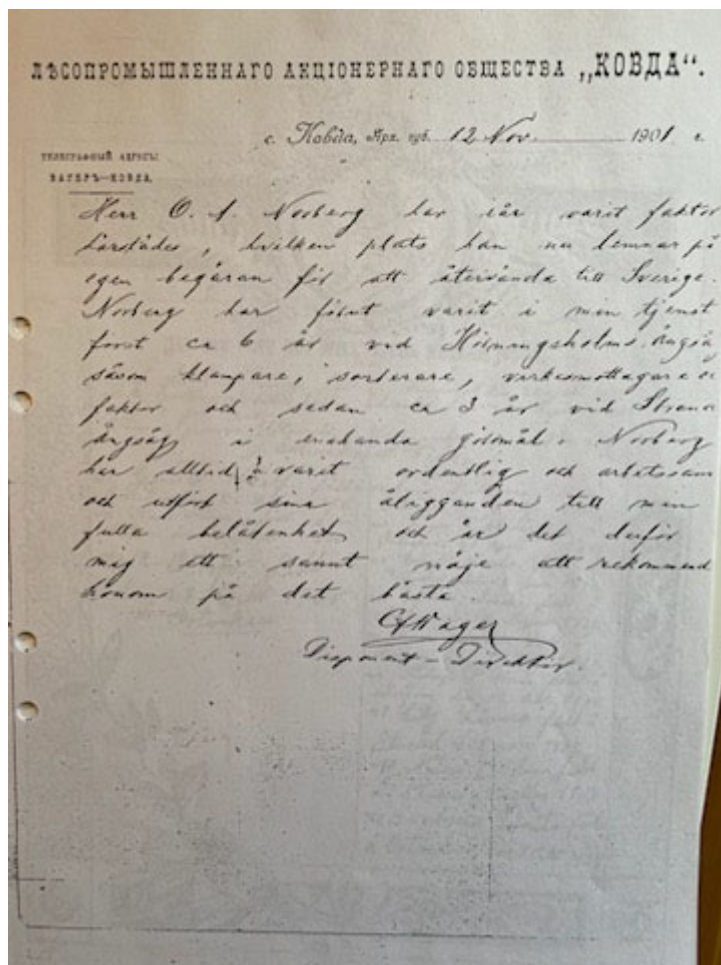 ЛѢСОПРОМЫШЛЕННАГО АКЦІОНЕРНАГО ОБЩЕСТВА „КОВДА“.
с. Ковда, Арх. губ. 12 Nov. 1901 г.
ТЕЛЕГРАФНЫЙ АДРЕСЪ:
ВАГЕРЪ—КОВДА.
Herr O. A. Norberg har i år varit faktor
härstädes, hvilken plats han nu lemnar på
egen begäran för att återvända till Sverige.
Norberg har förut varit i min tjenst
först ca 6 år vid Hörningsholms Ångså
såsom klampare, sorterare, virkesmottagare o
faktor och sedan ca 3 år vid
Ångsåg i enahanda göromål. Norberg
har alltid varit ordentlig och arbetsam
och utfört sina åligganden till min
fulla belåtenhet och är det derför
mig ett sannt nöje att rekommend
honom på det bästa.
CfWager
Disponent – Direktör.